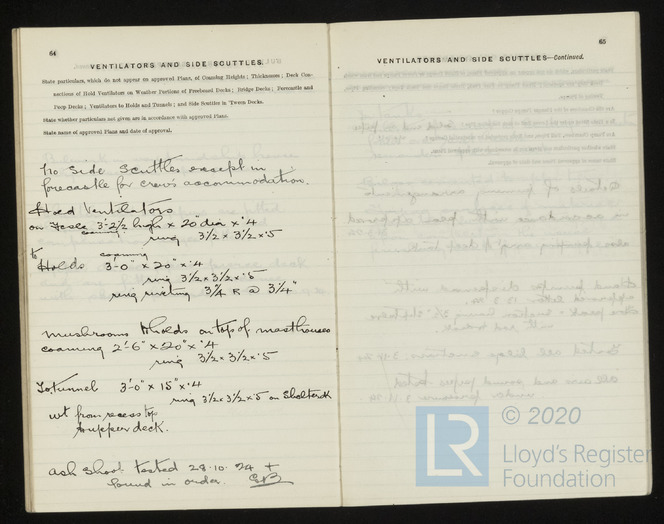 64
VENTILATORS AND SIDE SCUTTLES.
State particulars, which do not appear on approved Plans, of Coaming Heights; Thicknesses; Deck Con-
nections of Hold Ventilators on Weather Portions of Freeboard Decks; Bridge Decks; Forecastle and
Poop Decks; Ventilators to Holds and Tunnels; and Side Scuttles in 'Tween Decks.
State whether particulars not given are in accordance with approved Plans.
State name of approved Plans and date of approval.
No side scuttles except in
forecastle for crew's accommodation.
Hood Ventilators
on Fcsle 3'-2½ high × 20" dia × ·4
coaming
ring 3½ × 3½ × ·5
to coaming
Holds 3'-0" × 20" × ·4
ring 3½ × 3½ × ·5
ring riveting 3/4 R @ 3¼"
mushrooms to holds on top of masthouses
coaming 2'-6" × 20" × ·4
ring 3½ × 3½ × ·5
To tunnel 3'-0" × 15" × ·4
ring 3½ × 3½ × ·5 on Shelter dk
wt from recess top
to upper deck.
ash shoot tested 28·10·24 +
found in order.
65
VENTILATORS AND SIDE SCUTTLES—Continued.
© 2020
LR
Lloyd's Register
Foundation